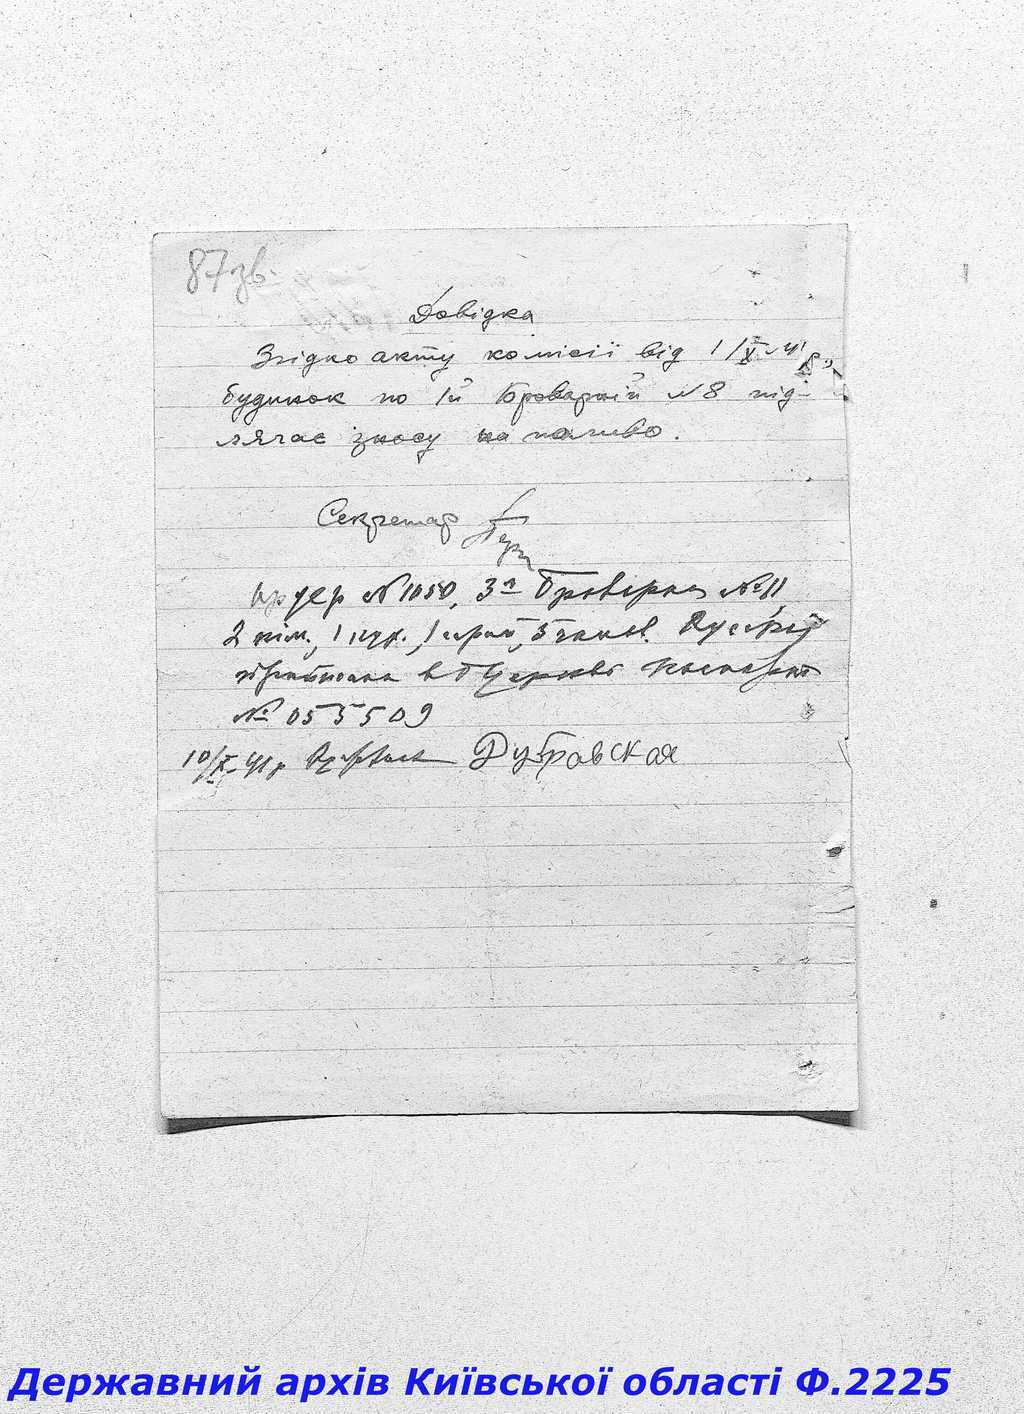 87зв.
Довідка
Згідно акту комісії від 1/X 41 р.
будинок по 1й Броварній №8 під-
лягає зносу на паливо.
Секретар
Ордер №1050, 3я Броварна №11
2 кім., 1 кух., 1
в Б Церкві
№ 055509
10/X-41р Дубровская
Державний архів Київської області Ф.2225